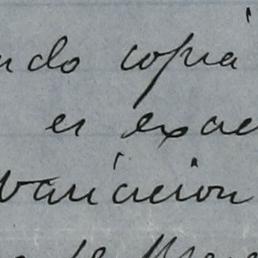 ndo copia
es exac
variacion